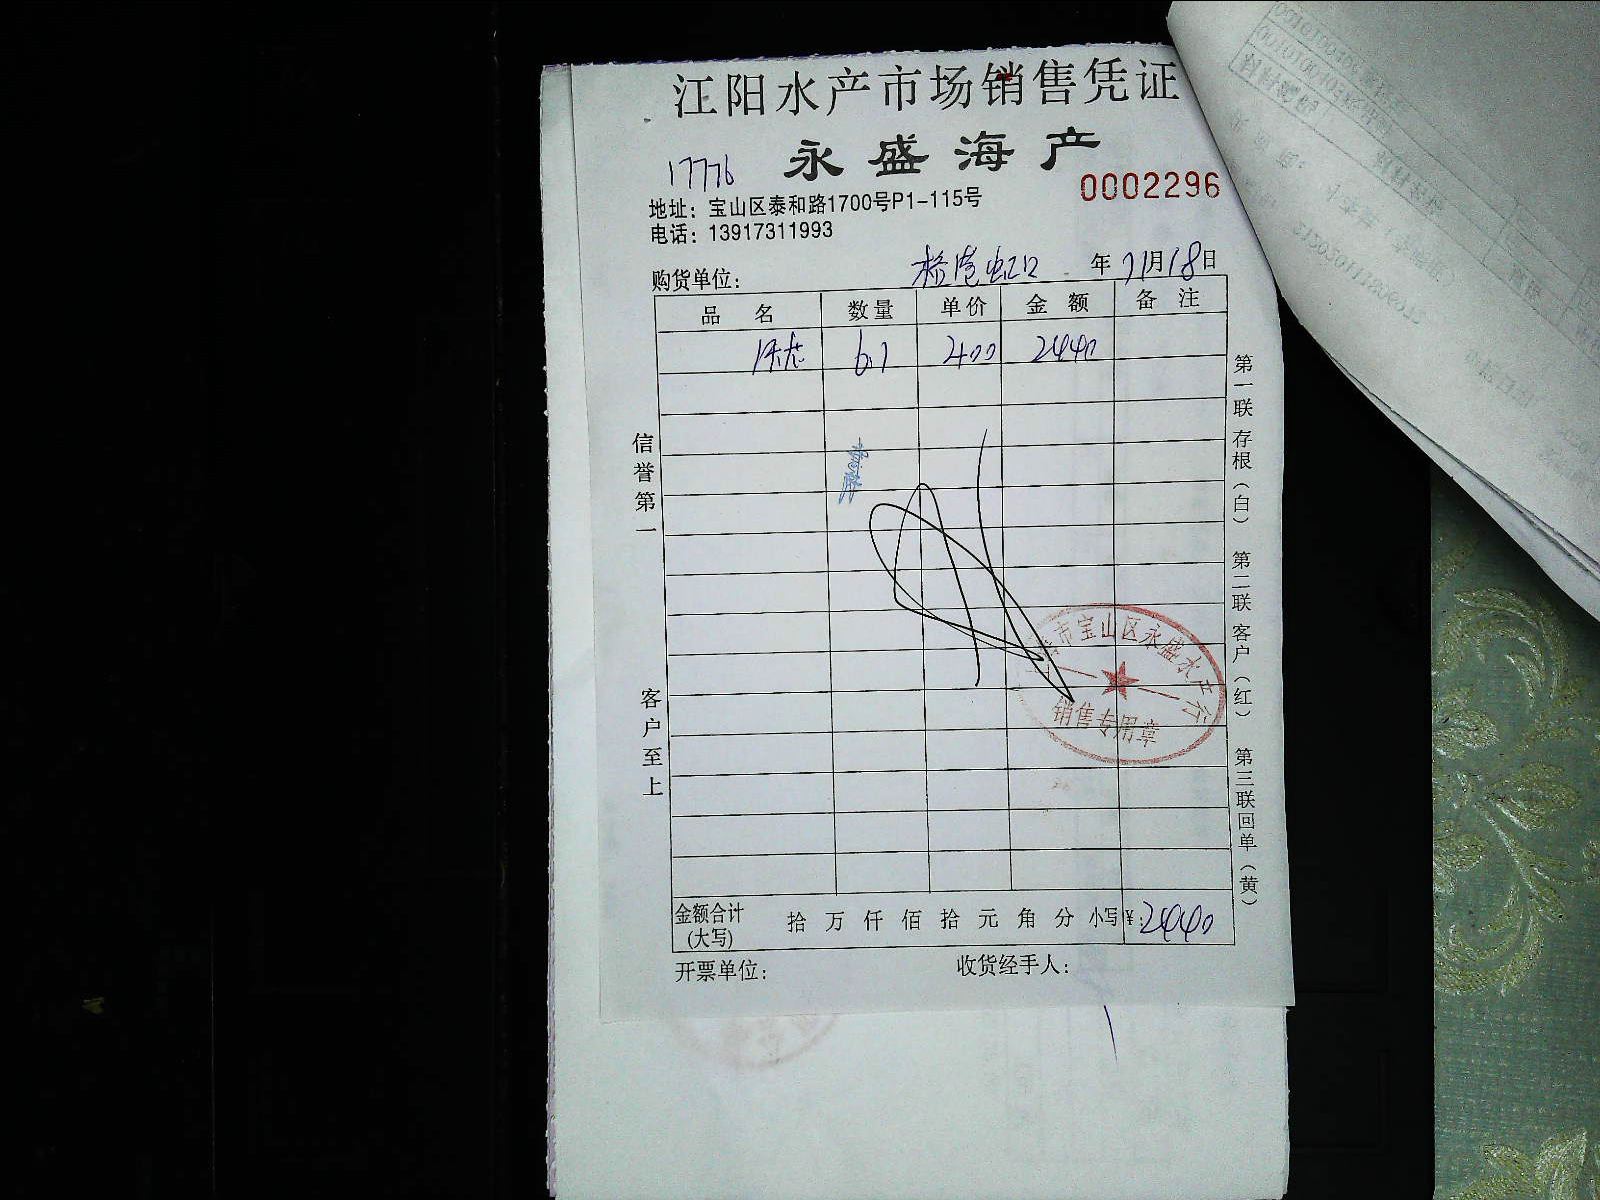 江阳水产市场销售凭证
永盛海产
17776
0002296
地址：宝山区泰和路1700号P1-115号
电话：13917311993
购货单位： 虹口 年 11月18日
品名 数量 单价 金额 备注
6.1 400 2440
信誉第一
客户至上
第一联存根（白） 第二联客户（红） 第三联回单（黄）
市宝山区永盛水产行
销售专用章
金额合计(大写) 拾 万 仟 佰 拾 元 角 分 小写¥：2440
开票单位： 收货经手人：